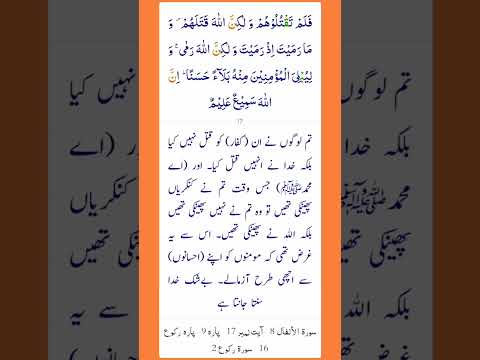 فَلَمْ تَقْتُلُوْهُمْ وَ لٰكِنَّ اللّٰهَ قَتَلَهُمْ ۪ وَ
مَا رَمَيْتَ اِذْ رَمَيْتَ وَ لٰكِنَّ اللّٰهَ رَمٰى ۚ وَ
لِيُبْلِيَ الْمُؤْمِنِيْنَ مِنْهُ بَلَآءً حَسَنًا ؕ اِنَّ
اللّٰهَ سَمِيْعٌ عَلِيْمٌ
17
تم لوگوں نے ان (کفار) کو قتل نہیں کیا
بلکہ خدا نے انہیں قتل کیا۔ اور (اے
محمدﷺ) جس وقت تم نے کنکریاں
پھینکی تھیں تو وہ تم نے نہیں پھینکی تھیں
بلکہ اللہ نے پھینکی تھیں۔ اس سے یہ
غرض تھی کہ مومنوں کو اپنے (احسانوں)
سے اچھی طرح آزمالے۔ بےشک خدا
سنتا جانتا ہے
سورة الأنفال 8 آیت نمبر 17 پارہ 9 پارہ رکوع
16 سورۃ رکوع 2